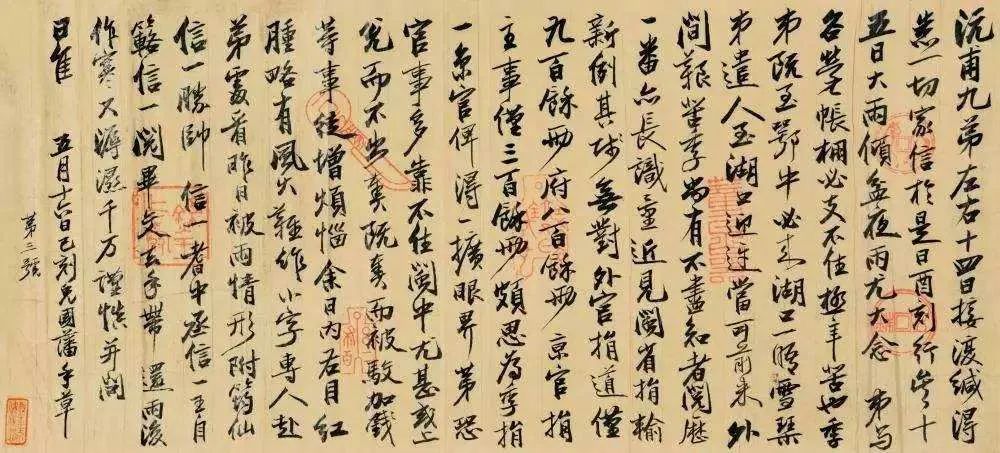 沅甫九弟左右十四日接复缄得
悉一切家信於是日酉刻行矣十
五日大雨倾盆夜雨尤大念弟与
各营帐棚必支不住极辛苦也季
弟既至鄂中必来湖口一晤雪琴
弟遣人至湖口迎迓当可前来外
间艰苦季尚有不尽知者阅历
一番亦长识量近见闽省捐输
新例其城无对外官捐道仅
九百馀两府八百馀两京官捐
主事仅三百馀两颇思为季捐
一京官俾得一扩眼界第恐
官事多靠不住闽中尤甚或上
兑而不出奏既奏而被驳加钱
等事徒增烦恼余日内右目红
肿略有风火难作小字专人赴
弟处看昨日被雨情形附筠仙
信一胜帅信一耆中丞信一王自
信一阅毕交去手带还雨后
作寒又潮湿千万谨慎并问
日佳 五月十六日巳刻兄国藩手草
第三号